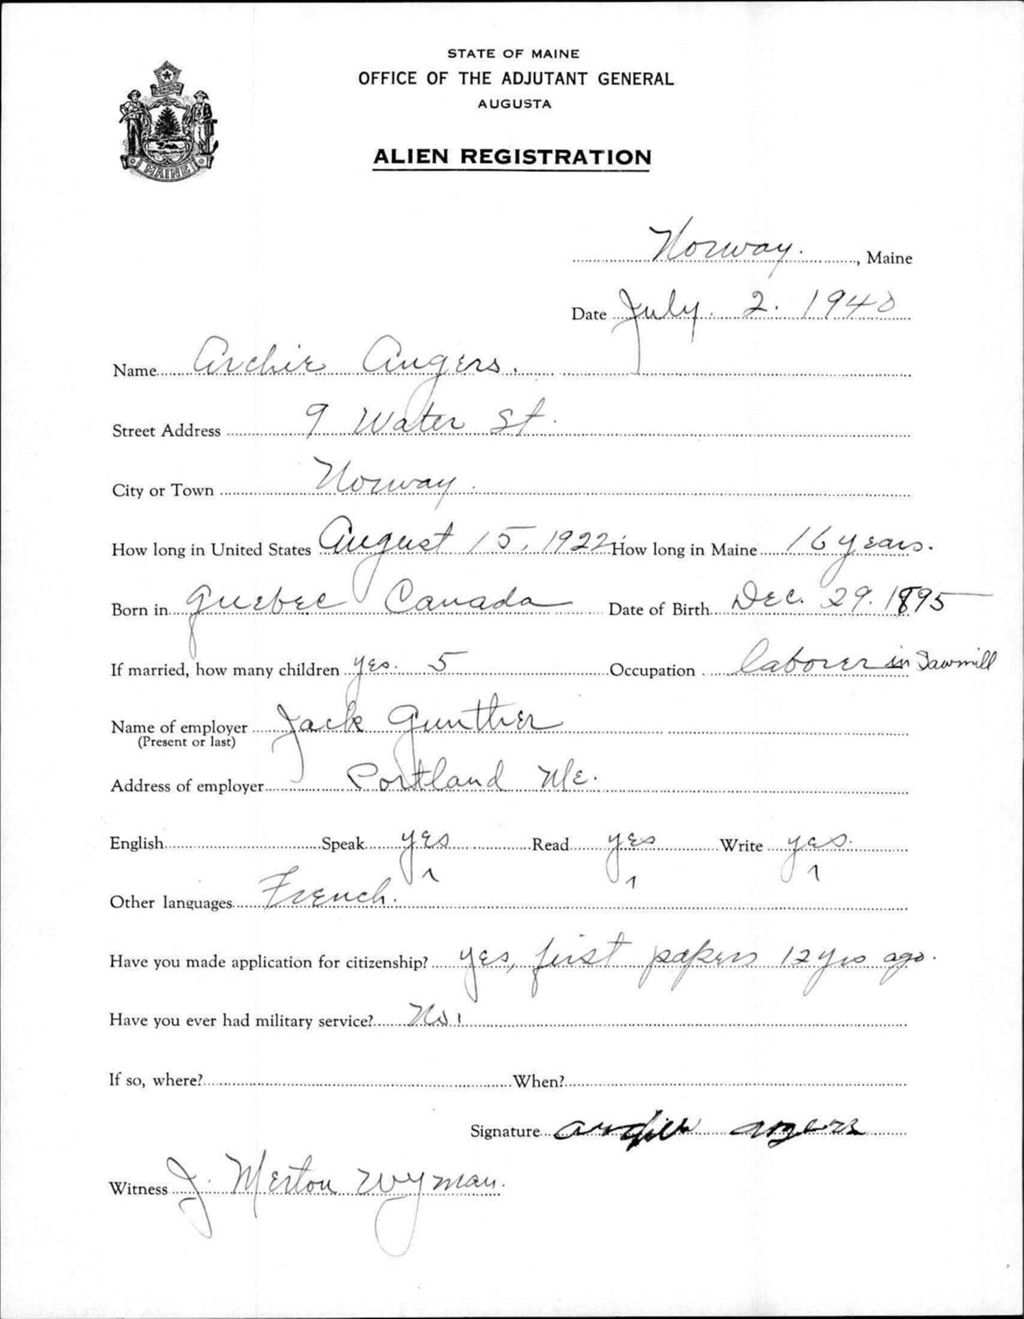 STATE OF MAINE
OFFICE OF THE ADJUTANT GENERAL
AUGUSTA
ALIEN REGISTRATION
MAINE
Norway., Maine
Date July. 2. 1940
Name Archie Angers.
Street Address 9 Water St.
City or Town Norway.
How long in United States August 15, 1922 How long in Maine 16 years.
Born in Quebec Canada Date of Birth Dec. 29. 1895
If married, how many children yes. 5 Occupation laborer in Sawmill
Name of employer Jack Gunther
(Present or last)
Address of employer Portland Me.
English Speak yes Read yes Write yes.
Other languages French.
Have you made application for citizenship? yes, first papers 12 yrs ago.
Have you ever had military service? No.
If so, where? When?
Signature Archie Angers
Witness J. Merton Wyman.